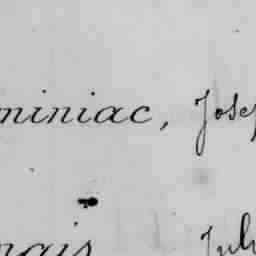 miniac, Josep
nais Juli